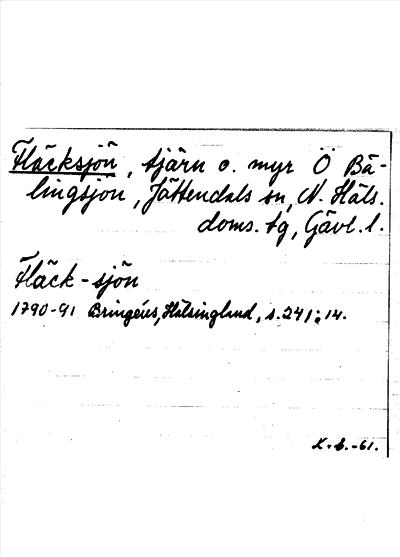 Fläcksjön, tjärn o. myr Ö Bä-
lingsjön, Jättendals sn, N. Häls.
doms. tg, Gävl. l.
Fläck-sjön
1790-91 Bringéus, Hälsingland, s. 241:14.
K. L. -61.